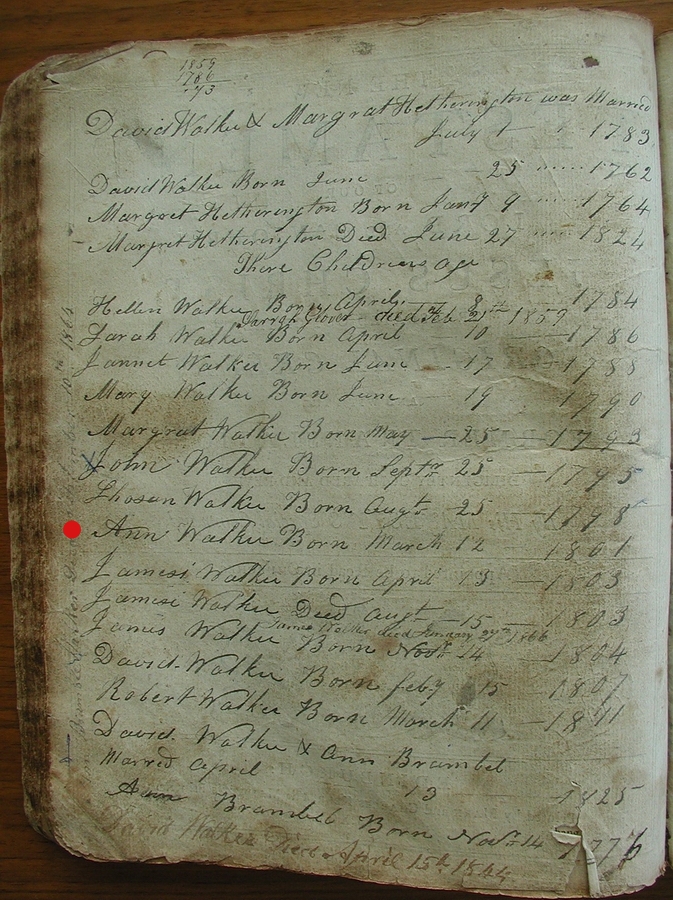 1859
1786
73
David Walker & Margrat Hetherington was Married
July 1 1783
David Walker Born June 25 1762
Margret Hetherington Born Jany 9 1764
Margret Hetherington Died June 27 1824
There Childrens age
Hellen Walker Born April 8 1784
Sarrah Glover died Feb 21th 1859
Sarah Walker Born April 10 1786
Jannet Walker Born June 17 1788
Mary Walker Born June 19 1790
Margrat Walker Born May 25 1793
John Walker Born Septr 25 1795
Thosan Walker Born Augt 25 1798
Ann Walker Born March 12 1801
James Walker Born April 13 1803
James Walker Died Augt 15 1803
James Walker died January 27th 1866
James Walker Born Novr 14 1804
David Walker Born feby 15 1807
Robert Walker Born March 11 1811
David Walker & Ann Brambel
Marred April 13 1825
Ann Brambel Born Novr 14 177
David Walker Died April 15th 1864